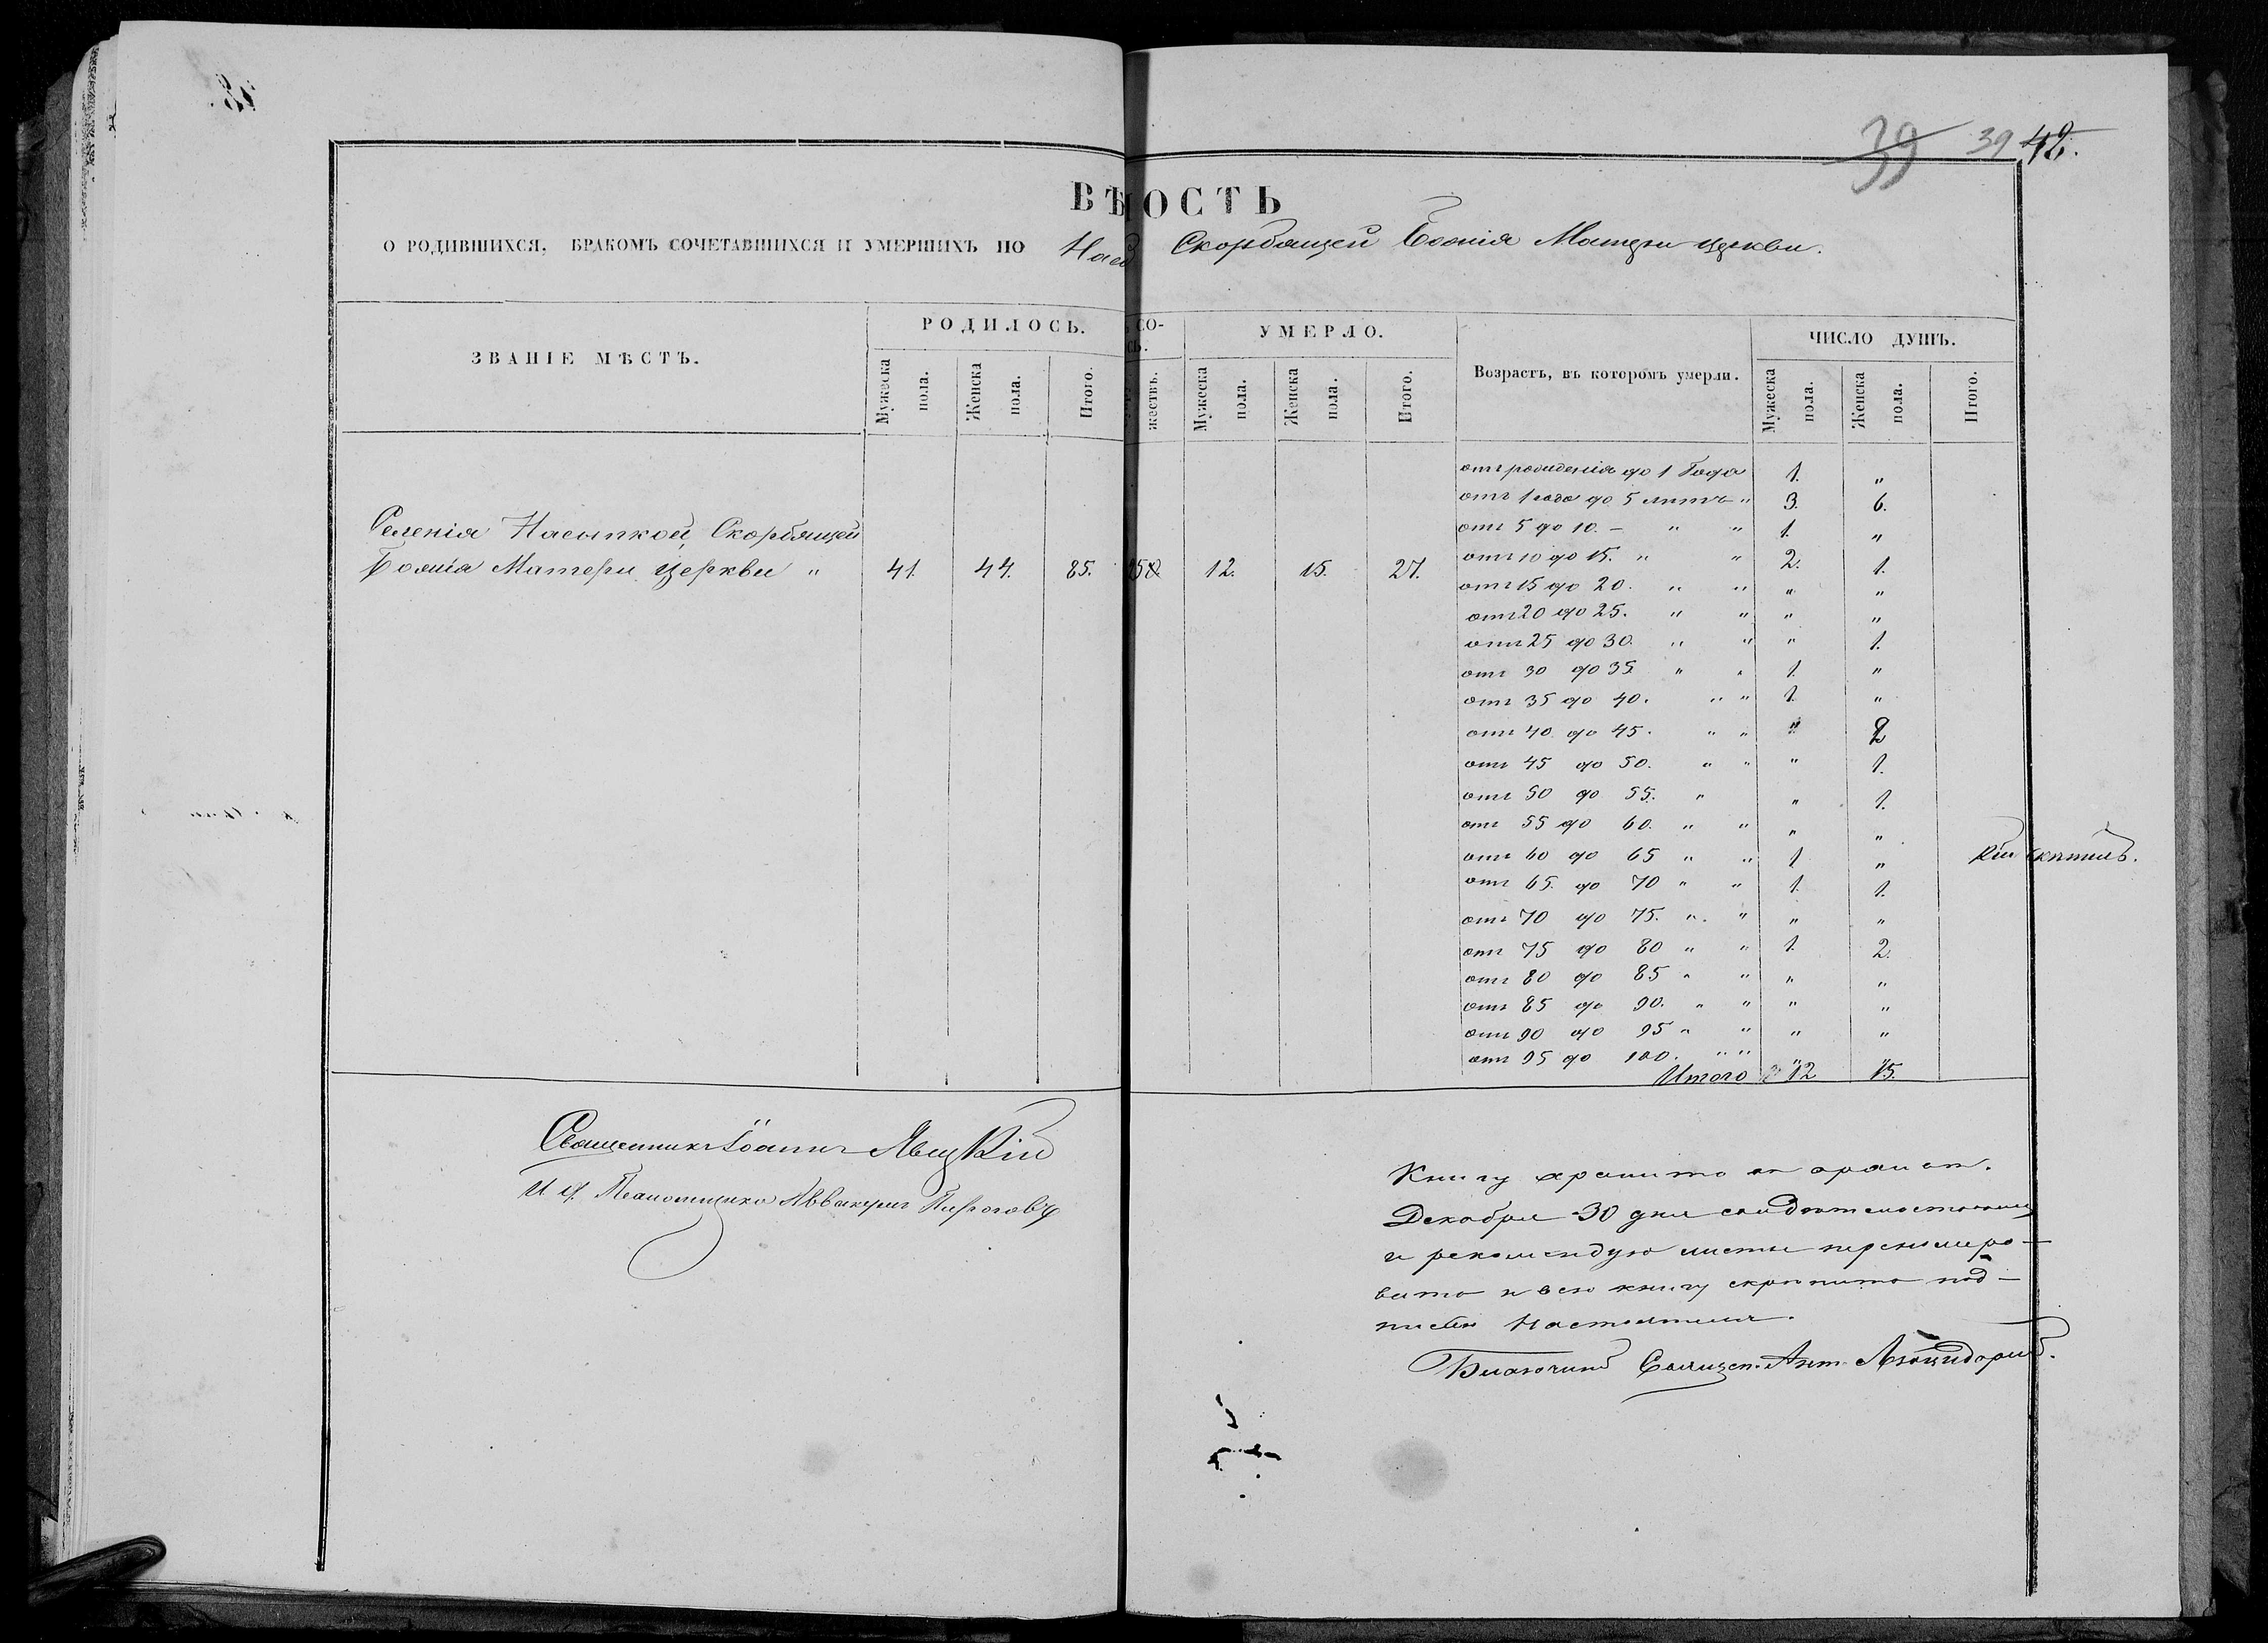 39 39 42.
ВѢ ОСТЬ
О РОДИВШИХСЯ, БРАКОМЪ СОЧЕТАВШИХСЯ И УМЕРШИХЪ ПО Скорбящей Божія Матери церкви.
ЗВАНІЕ МѢСТЪ. РОДИЛОСЬ. СО- УМЕРЛО. Возрастъ, въ которомъ умерли. ЧИСЛО ДУШЪ.
СЬ.
Мужеска пола. Женска пола. Итого. жествъ. Мужеска пола. Женска пола. Итого. Мужеска пола. Женска пола. Итого.
Селенія Насыпкой, Скорбящей
Божія Матери церкви " 41. 44. 85. 12. 15. 27.
отъ рожденія до 1 Года 1. "
отъ 1 года до 5 лѣтъ " 3. 6.
отъ 5 до 10. – " " 1. "
отъ 10 до 15. " " 2. 1.
отъ 15 до 20. " " " "
отъ 20 до 25. " " " "
отъ 25 до 30. " " " 1.
отъ 30 до 35 " " 1. "
отъ 35 до 40. " " 1. "
отъ 40 до 45. " " " 2
отъ 45 до 50. " " " 1.
отъ 50 до 55. " " 1.
отъ 55 до 60. " " " "
отъ 60 до 65 " " 1 "
отъ 65. до 70 " " 1. 1.
отъ 70 до 75. " " " "
отъ 75 до 80 " " 1. 2.
отъ 80 до 85 " " " "
отъ 85 до 90. " " " "
отъ 90 до 95 " " " "
отъ 95 до 100. " " " "
Итого 12 15.
Священникъ Іоаннъ Явецкій
И д. Псаломщика Аввакумъ Пироговъ
Книгу
Декабря 30 дня
и рекомендую листы перенумеро-
вать и всю книгу скрѣпить под-
писью Настоятеля.
Благочинный Священ. Ант.